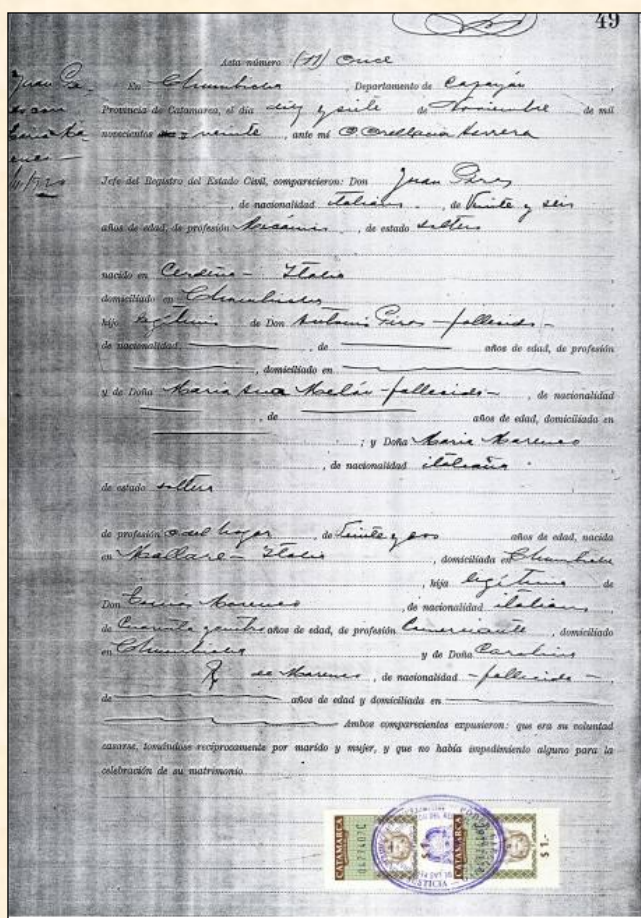 49
Acta número (11) Once
En Chumbicha, Departamento de Capayán,
Provincia de Catamarca, el día diez y siete de Noviembre de mil
novecientos veinte, ante mí O. Orellana Herrera
Jefe del Registro del Estado Civil, comparecieron: Don Juan Pires
, de nacionalidad italiano, de Veinte y seis
años de edad, de profesión Mecánico, de estado soltero
nacido en Cerdeña - Italia
domiciliado en Chumbicha
hijo legítimo de Don Antonio Pires - fallecido -
de nacionalidad, de años de edad, de profesión
, domiciliado en
y de Doña Maria Ana Melán - fallecida -, de nacionalidad
, de años de edad, domiciliado en
; y Doña Maria Marenco
, de nacionalidad italiana
de estado soltera
de profesión q. del hogar, de Veinte y dos años de edad, nacida
en Mallare - Italia, domiciliada en Chumbicha
, hija legítima de
Don Marenco, de nacionalidad italiano,
de Cuarenta y años de edad, de profesión Comerciante, domiciliado
en Chumbicha y de Doña Carolina
R de Marenco, de nacionalidad - fallecida -,
de años de edad y domiciliada en
Ambos comparecientes expusieron: que era su voluntad
casarse, tomándose recíprocamente por marido y mujer, y que no había impedimento alguno para la
celebración de su matrimonio
CATAMARCA
CATAMARCA
$ 1.-
JUSTICIA